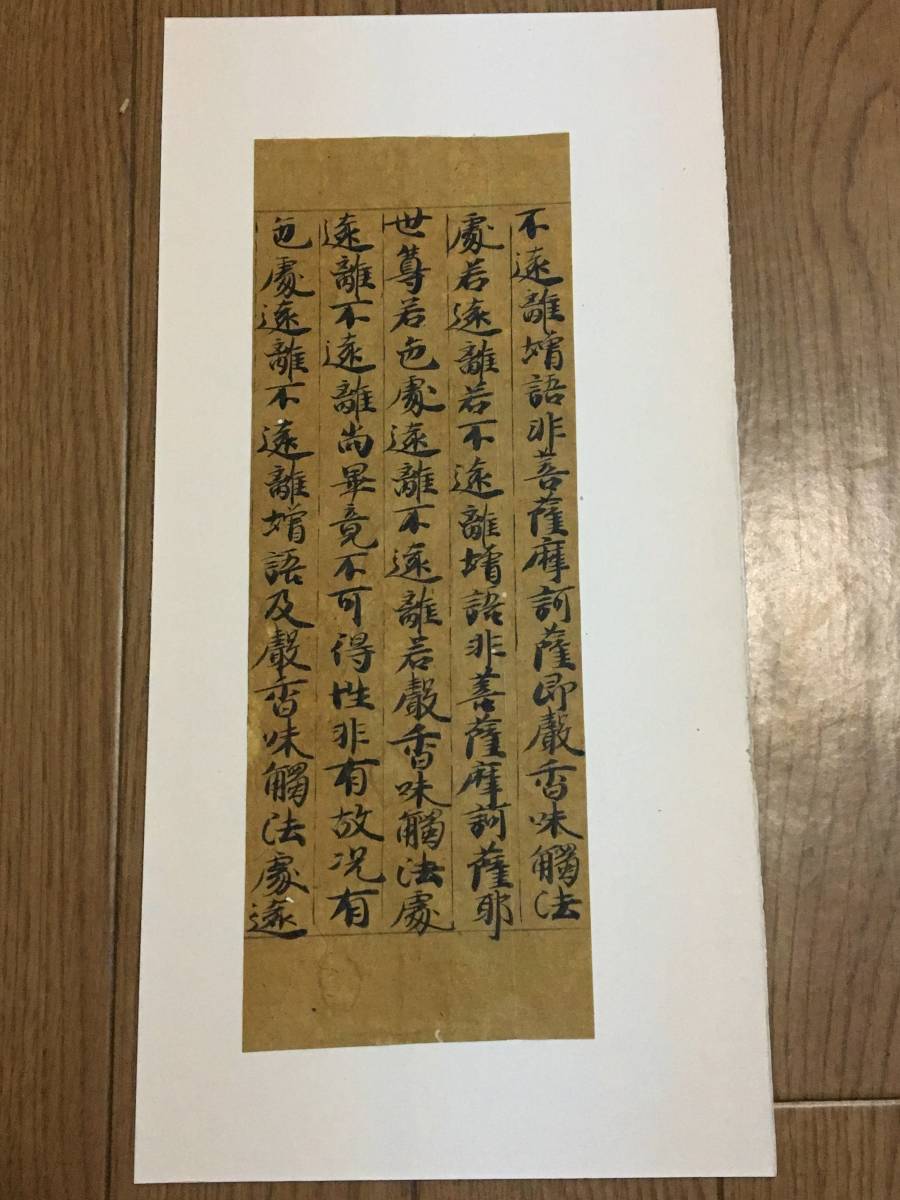 不遠離增語非菩薩摩訶薩即聲香味觸法
處若遠離若不遠離增語非菩薩摩訶薩耶
世尊若色處遠離不遠離若聲香味觸法處
遠離不遠離尚畢竟不可得性非有故况有
色處遠離不遠離增語及聲香味觸法處遠